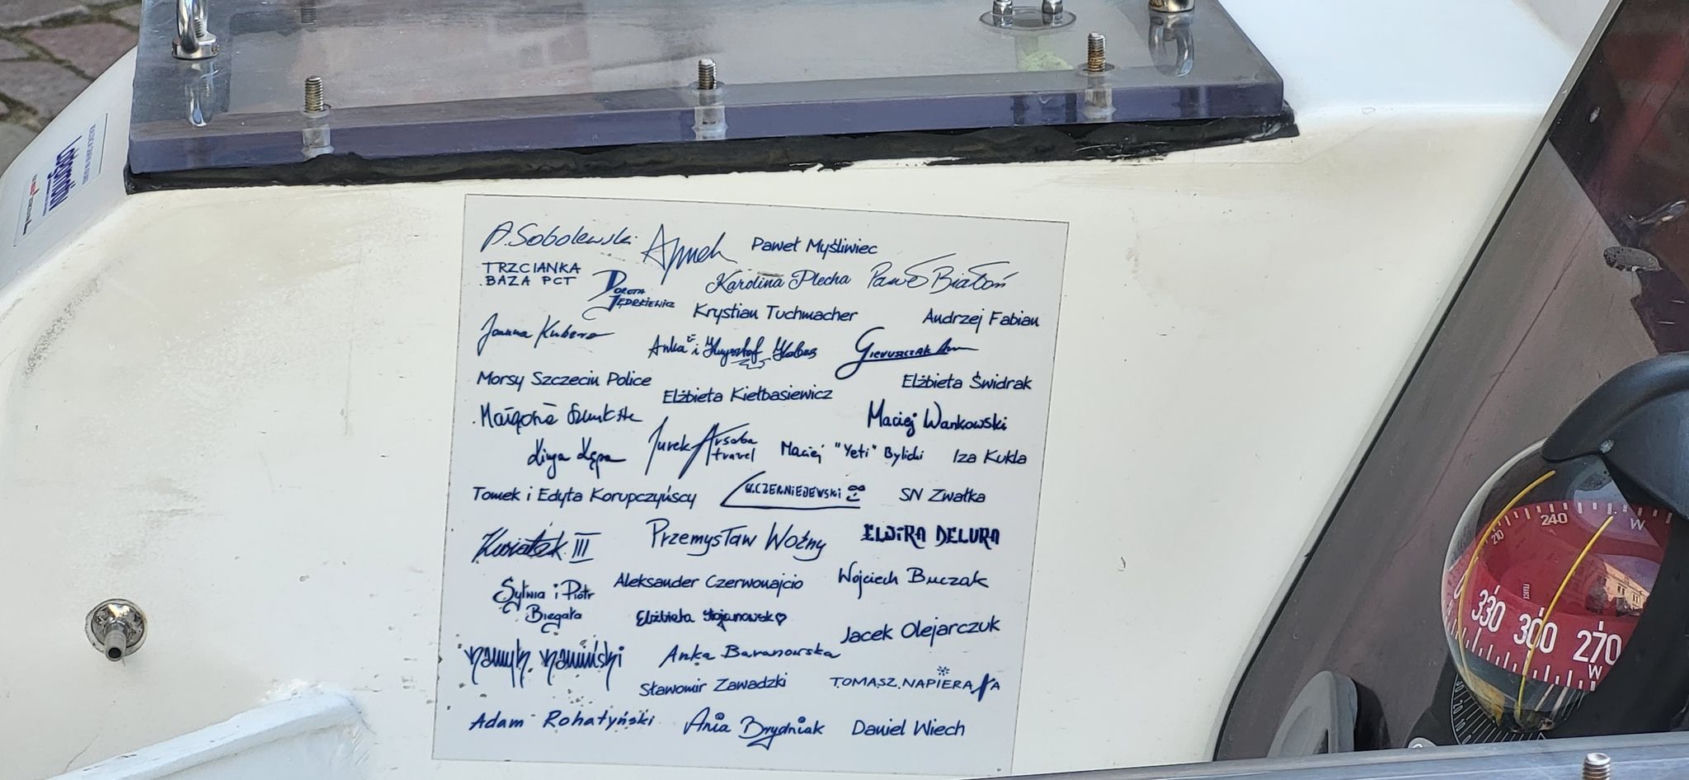 A. Sobolewski
Paweł Myśliwiec
TRZCIANKA
BAZA PCT
Dorota
Jędrkiewicz
Karolina Plecha
Paweł Białoń
Krystian Tuchmacher
Andrzej Fabian
Joanna Kubera
Anka i Krzysztof
Morsy Szczecin Police
Elżbieta Kiełbasiewicz
Elżbieta Świdrak
Maciej Wankowski
Kinga Kępa
Jurek Arsoba
travel
Maciej "Yeti" Bylicki
Iza Kukla
Tomek i Edyta Korupczyńscy
CZERNIEJEWSKI
SN Zwałka
Kwiatek III
Przemysław Woźny
ELWIRA DELURA
Sylwia i Piotr
Biegała
Aleksander Czerwonajcio
Wojciech Buczak
Elżbieta Stojanowska
Jacek Olejarczuk
Kamiński
Anka Baranowska
Sławomir Zawadzki
TOMASZ NAPIERAŁA
Adam Rohatyński
Ania Brydniak
Daniel Wiech
210
240
W
330
300
270
W